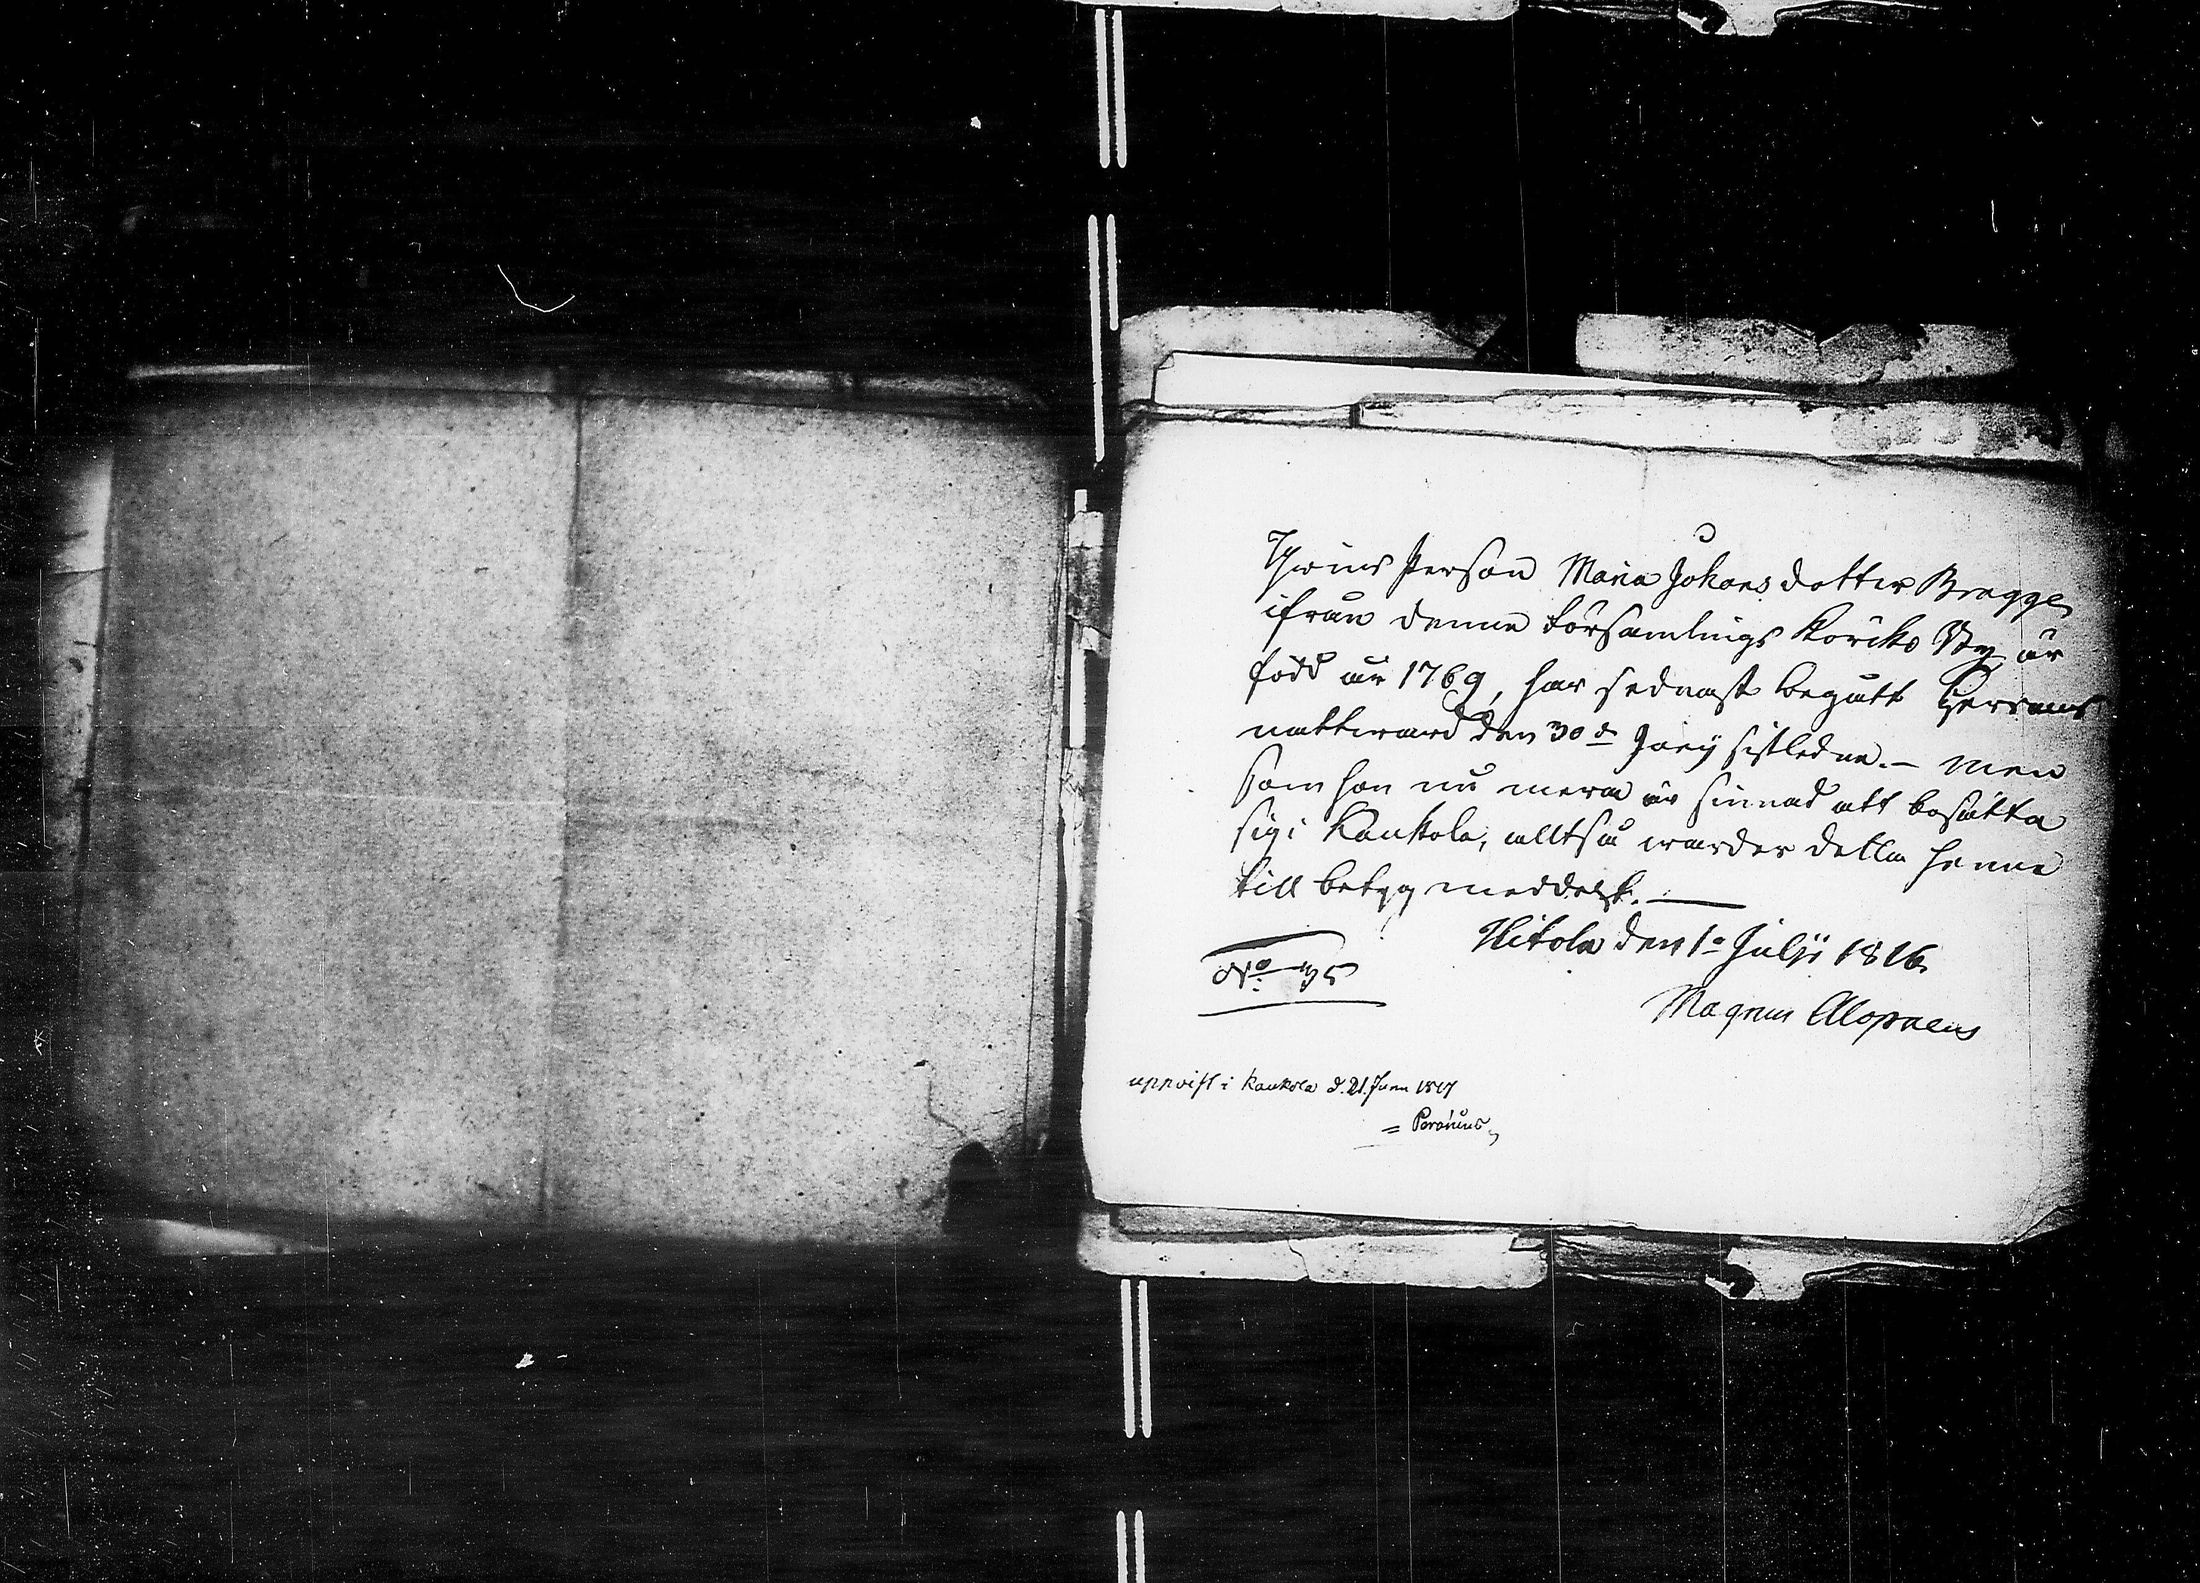 Qwins Person Maria Johans dotter Bragge
ifrån denna Församlings Koriko By är
född år 1769, har sednast begått Herrans
nattward den 30de sistledne. — men
som hon nu mera är sinnad att bosätta
sig i Kaukola, alltså warder detta henne
till betyg meddelt. —
Hitola den 1e Julÿ 1816.
No 35
Magnus Alopaeus
uppvist i Kaukola d. 21. Juni 1817